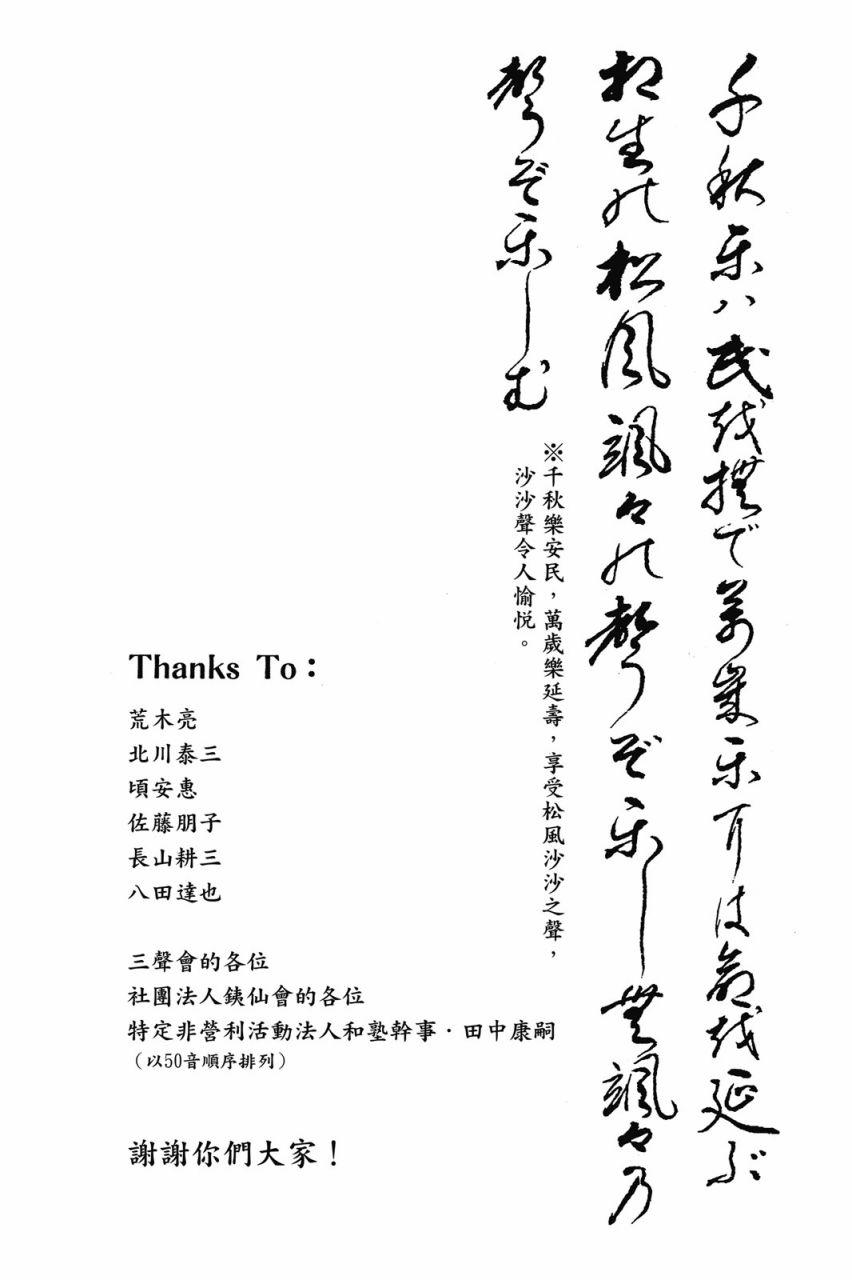 千秋楽ハ民越撫で萬歳楽耳は命越延ぶ
相生能松風颯々能聲ぞ楽し無颯々乃
聲ぞ楽しむ
※千秋樂安民，萬歲樂延壽，享受松風沙沙之聲，
沙沙聲令人愉悅。
Thanks To：
荒木亮
北川泰三
頃安惠
佐藤朋子
長山耕三
八田達也
三聲會的各位
社團法人銕仙會的各位
特定非營利活動法人和塾幹事．田中康嗣
（以50音順序排列）
謝謝你們大家！